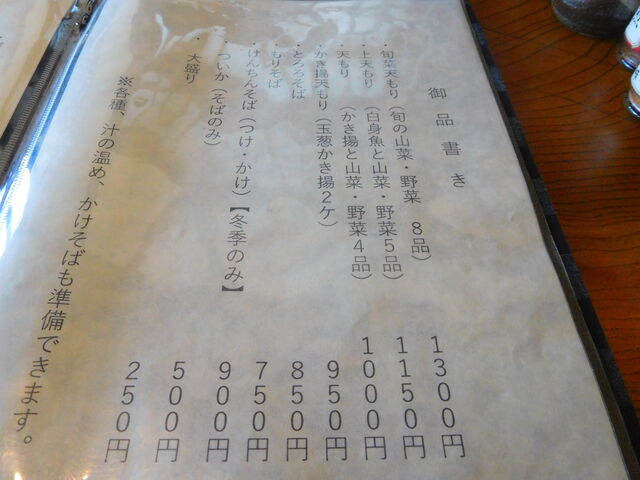 御品書き
・旬菜天もり（旬の山菜・野菜　8品） 1300円
・上天もり（白身魚と山菜・野菜5品） 1150円
・天もり（かき揚と山菜・野菜4品） 1000円
・かき揚天もり（玉葱かき揚2ケ） 950円
・とろろそば 850円
・もりそば 750円
・けんちんそば（つけ・かけ）【冬季のみ】 900円
・ついか（そばのみ） 500円
・大盛り 250円
※各種、汁の温め、かけそばも準備できます。